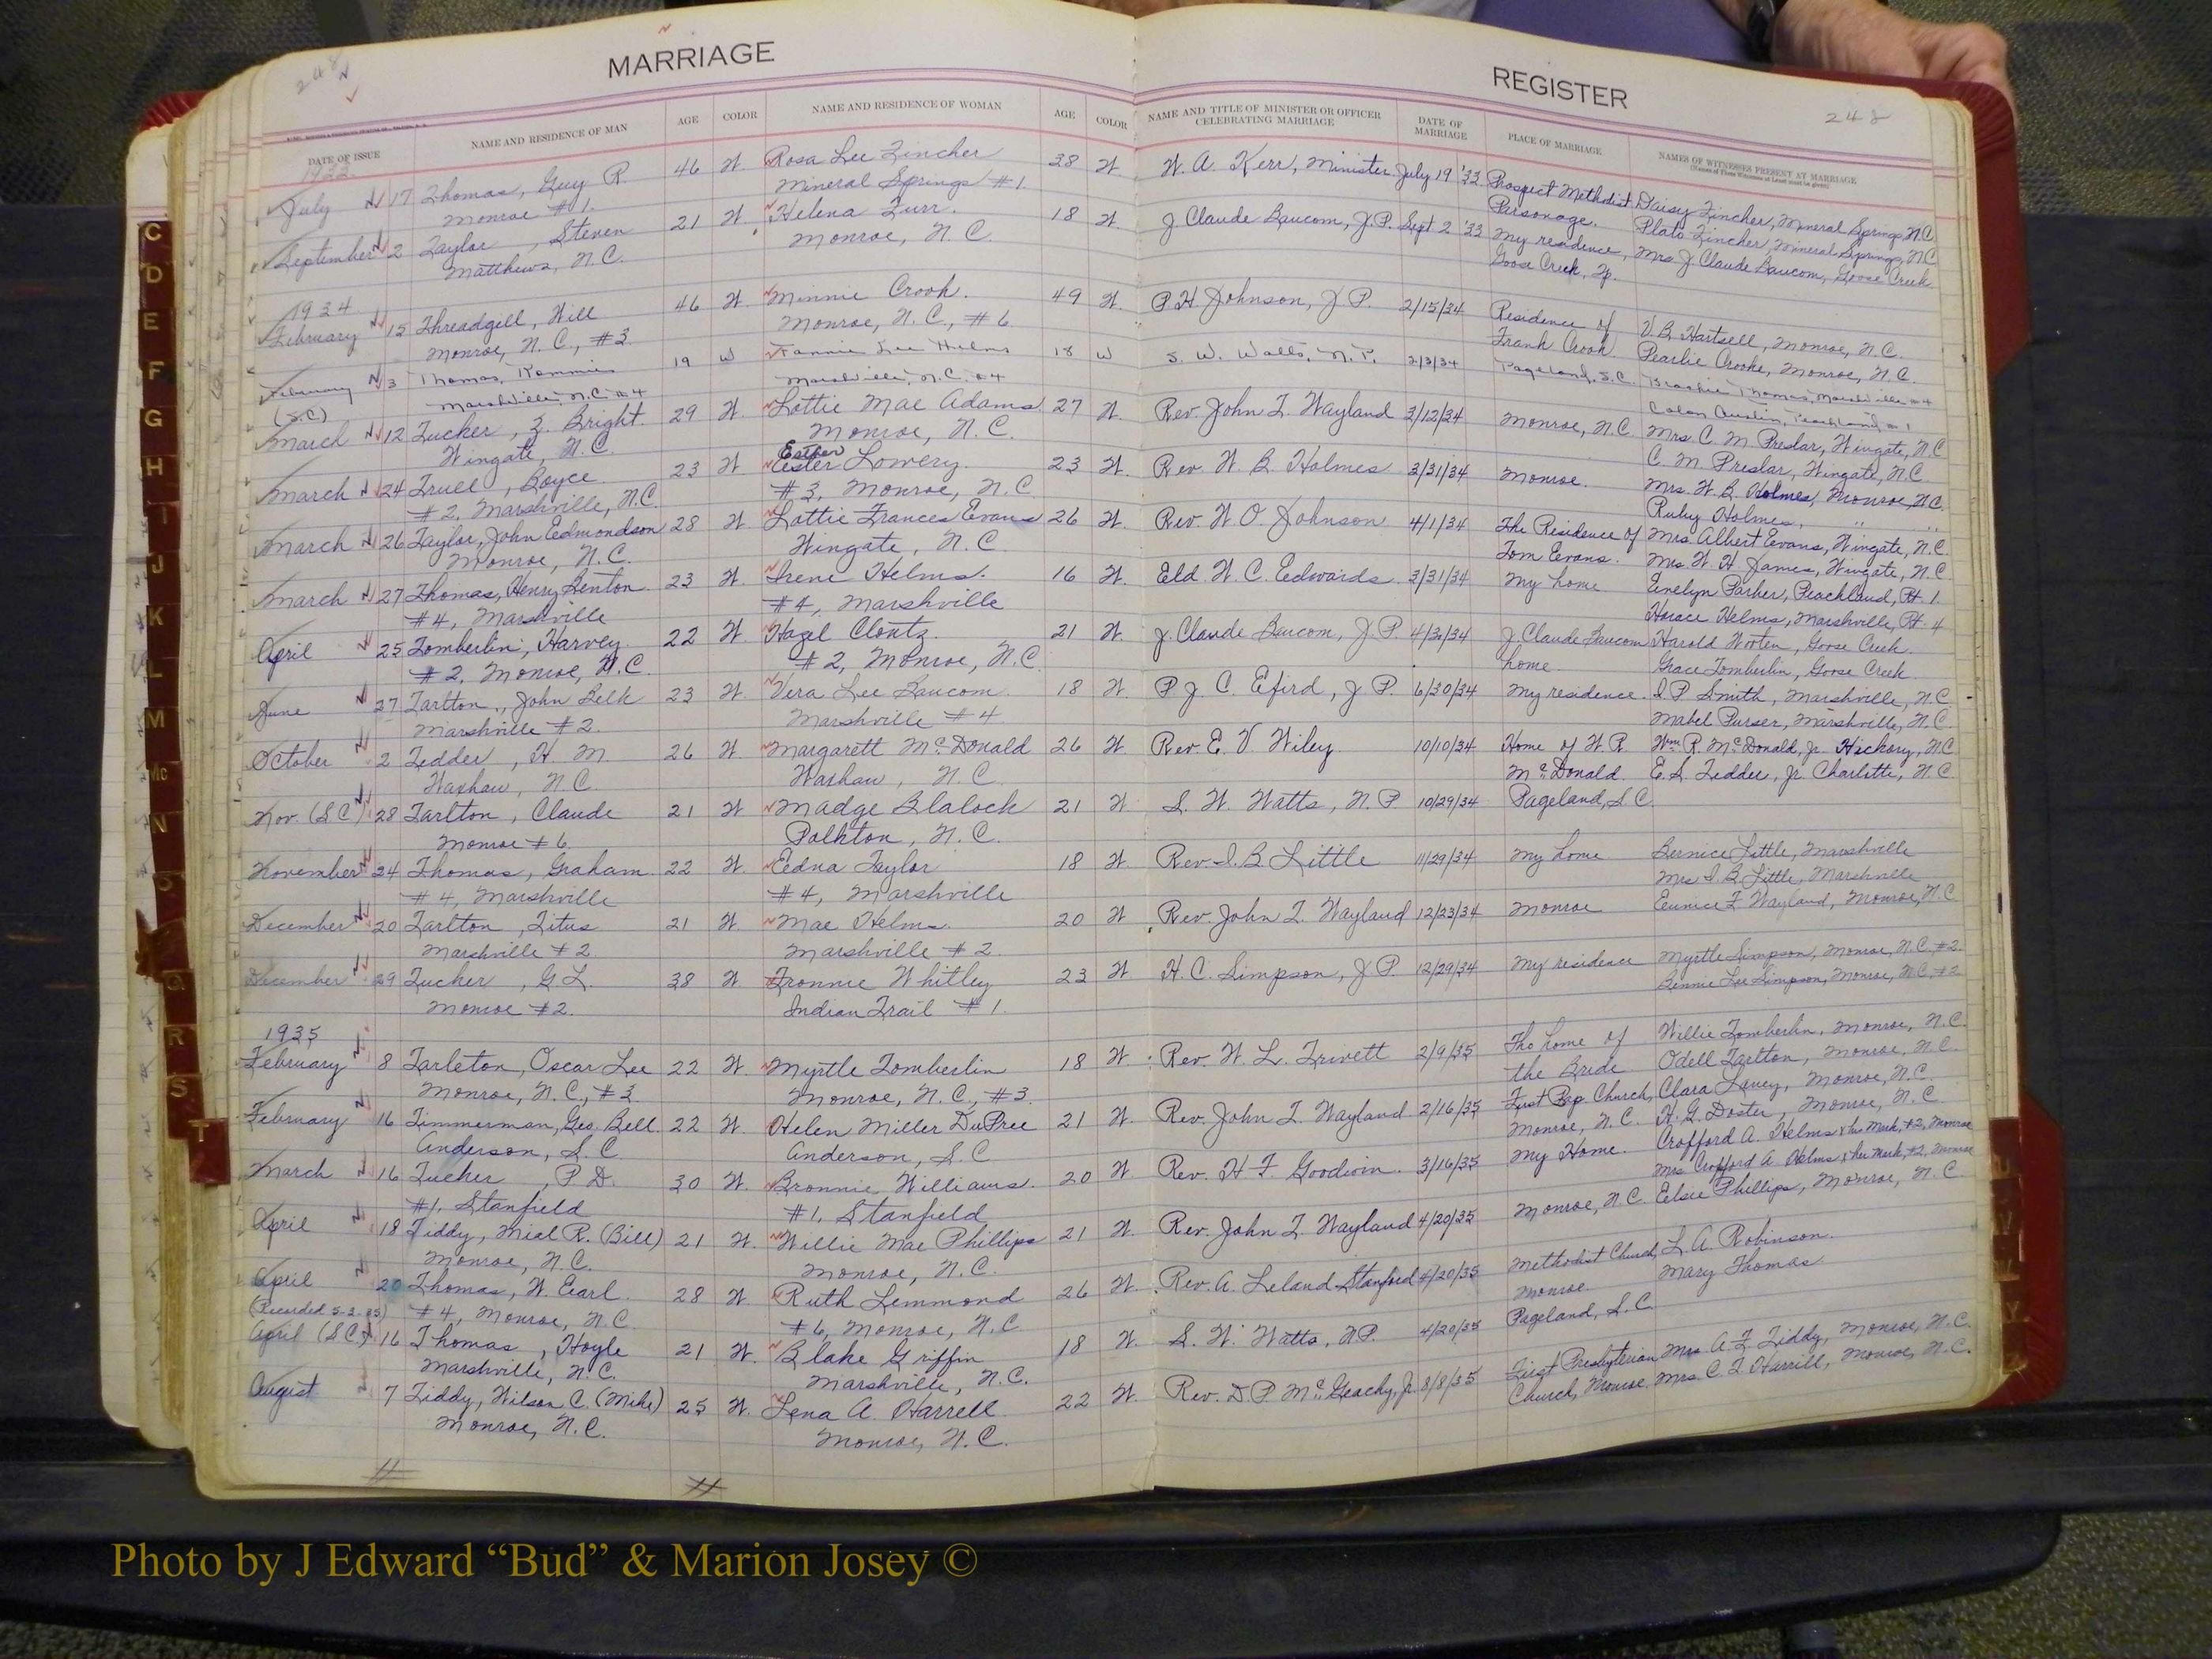 MARRIAGE
REGISTER
248
248
DATE OF ISSUE NAME AND RESIDENCE OF MAN AGE COLOR NAME AND RESIDENCE OF WOMAN AGE COLOR NAME AND TITLE OF MINISTER OR OFFICER CELEBRATING MARRIAGE DATE OF MARRIAGE PLACE OF MARRIAGE NAMES OF WITNESSES PRESENT AT MARRIAGE
1933
July 17 Thomas, Guy R. 46 W. Rosa Lee Fincher 28 W. W. A. Kerr, Minister July 19 '33 Prospect Methodist Daisy Fincher, Mineral Springs, N.C.
Monroe #1. Mineral Springs #1. Parsonage. Plato Fincher, Mineral Springs, N.C.
September 2 Taylor, Steven 21 W. Helena Furr. 18 W. J. Claude Baucom, J.P. Sept 2 '33 My residence, Mrs J Claude Baucom, Goose Creek
Matthews, N.C. Monroe, N.C. Goose Creek, Tp.
1934
February 15 Threadgill, Will 46 W. Minnie Crook. 49 W. P. H. Johnson, J.P. 2/15/34 Residence of V. B. Hartsell, Monroe, N.C.
Monroe, N.C., #3. Monroe, N.C., #6 Frank Crook. Pearlie Crooke, Monroe, N.C.
February 3 Thomas, Rommie 19 W Fannie Lee Helms 18 W S. W. Watts, N.P. 2/3/34 Pageland, S.C. Thomas, Marshville #4
(S.C.) Marshville, N.C. #4 Marshville, N.C. #4 Colon Austin, Peachland #1
March 12 Tucker, Z. Bright. 29 W. Lottie Mae Adams 27 W. Rev. John T. Wayland 3/12/34 Monroe, N.C. Mrs. C. M. Preslar, Wingate, N.C.
Wingate, N.C. Monroe, N.C. C. M. Preslar, Wingate, N.C.
March 24 Truell, Boyce. 23 W. Ester Esther Lowery. 23 W. Rev. W. B. Holmes 3/31/34 Monroe. Mrs. W. B. Holmes, Monroe, N.C.
#2, Marshville, N.C. #3, Monroe, N.C. Ruby Holmes, " "
March 26 Taylor, John Edmondson 28 W. Lottie Frances Evans 26 W. Rev. W. O. Johnson 4/1/34 The Residence of Mrs. Albert Evans, Wingate, N.C.
Monroe, N.C. Wingate, N.C. Tom Evans. Mrs. W. H. James, Wingate, N.C
March 27 Thomas, Henry Benton 23 W. Irene Helms. 16 W. Eld. W. C. Edwards 3/31/34 My home Evelyn Parker, Peachland, Rt. 1.
#4, Marshville #4, Marshville Horace Helms, Marshville, Rt. 4
April 25 Tomberlin, Harvey 22 W. Hazel Clontz. 21 W. J. Claude Baucom, J.P. J Claude Baucom Harold Wooten, Goose Creek.
#2, Monroe, N.C. #2, Monroe, N.C. home. Grace Tomberlin, Goose Creek
June 27 Tarlton, John Belk 23 W. Vera Lee Baucom 18 W. P. J. C. Efird, J.P. 6/30/34 My residence. S. P. Smith, Marshville, N.C.
Marshville #2. Marshville #4 Mabel Purser, Marshville, N.C.
October 2 Tedder, H. M. 26 W. Margarett McDonald 26 W. Rev. E. V. Wiley 10/10/34 Home of W. R. Wm. R. McDonald, Jr. Hickory, N.C
Waxhaw, N.C. Waxhaw, N.C. McDonald. E. S. Tedder, Jr. Charlotte, N.C
Nov. (S.C.) 28 Tarlton, Claude 21 W. Madge Blalock 21 W. S. W. Watts, N.P. 10/29/34 Pageland, S.C.
Monroe #6 Polkton, N.C.
November 24 Thomas, Graham 22 W. Edna Taylor 18 W. Rev. I. B. Little 11/29/34 My home Bernice Little, Marshville
#4, Marshville #4, Marshville Mrs I. B. Little, Marshville
December 20 Tarlton, Titus 21 W. Mae Helms. 20 W. Rev. John T. Wayland 12/23/34 Monroe Eunice F Wayland, Monroe, N.C
Marshville #2. Marshville #2.
December 29 Tucker, G L. 38 W. Fronnie Whitley 23 W. H. C. Simpson, J.P. 12/29/34 My residence Myrtle Simpson, Monroe, N.C. #2.
Monroe #2. Indian Trail #1. Bennie Lee Simpson, Monroe, N.C. #2
1935
February 8 Tarleton, Oscar Lee 22 W. Myrtle Tomberlin 18 W. Rev. W. L. Trivett 2/9/35 The home of Willie Tomberlin, Monroe, N.C.
Monroe, N.C., #3. Monroe, N.C., #3. the Bride Odell Tarlton, Monroe, N.C.
February 16 Timmerman, Geo. Bell. 22 W. Helen Miller DuPree 21 W. Rev. John T. Wayland 2/16/35 First Bap. Church, Clara Laney, Monroe, N.C.
Anderson, S.C. Anderson, S.C Monroe, N.C. H. G. Doster, Monroe, N.C.
March 16 Tucker, P. D. 30 W. Bronnie Williams. 20 W. Rev. H. F. Goodwin. 3/16/35 My Home. Crofford A. Helms x his Mark, #2, Monroe
#1, Stanfield #1, Stanfield Mrs Crofford A. Helms x her Mark, #2, Monroe
April 18 Tiddy, Mial R. (Bill) 21 W. Willie Mae Phillips 21 W. Rev. John T. Wayland 4/20/35 Monroe, N.C. Elsie Phillips, Monroe, N.C.
Monroe, N.C. Monroe, N.C.
April 20 Thomas, W. Earl. 28 W. Ruth Lemmond 26 W. Rev. A. Leland Stanford 4/20/35 Methodist Church, L. A. Robinson.
(Recorded 5-2-35) #4, Monroe, N.C. #6, Monroe, N.C Monroe. Mary Thomas
April (S.C.) 16 Thomas, Hoyle 21 W. Blake Griffin 18 W. S. W. Watts, N.P. 4/20/35 Pageland, S.C.
Marshville, N.C. Marshville, N.C.
August 7 Tiddy, Wilson C. (Mike) 25 W. Lena A. Harrell 22 W. Rev. D P McGeachy, Jr. 8/8/35 First Presbyterian Mrs A. F. Tiddy, Monroe, N.C.
Monroe, N.C. Monroe, N.C. Church, Monroe. Mrs C. T. Harrill, Monroe, N.C.
C
D
E
F
G
H
I
J
K
L
M
Mc
N
O
Q
R
S
T
V
Y
Photo by J Edward “Bud” & Marion Josey ©